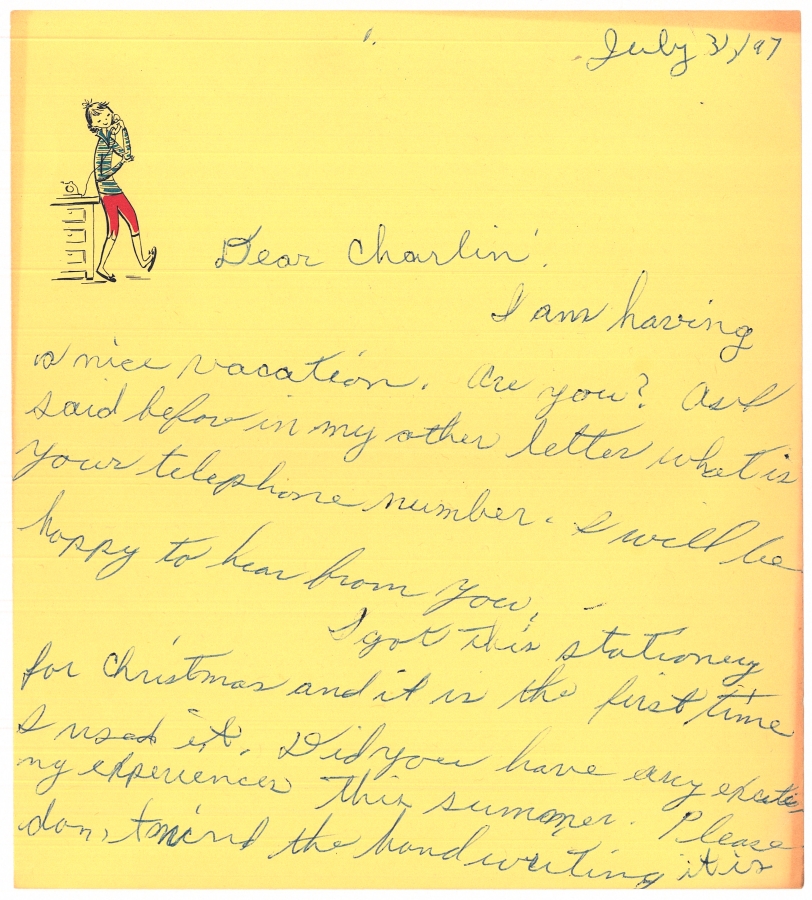 July 31, 197
Dear Charlin'.
I am having
a nice vacation. Are you? As I
said befor in my other letter what is
your telephone number. I will be
happy to hear from you.
I got this stationery
for Christmas and it is the first time
I used it. Did you have any exciti
ng experiences this summer. Please
don,t mind the handwriting it is